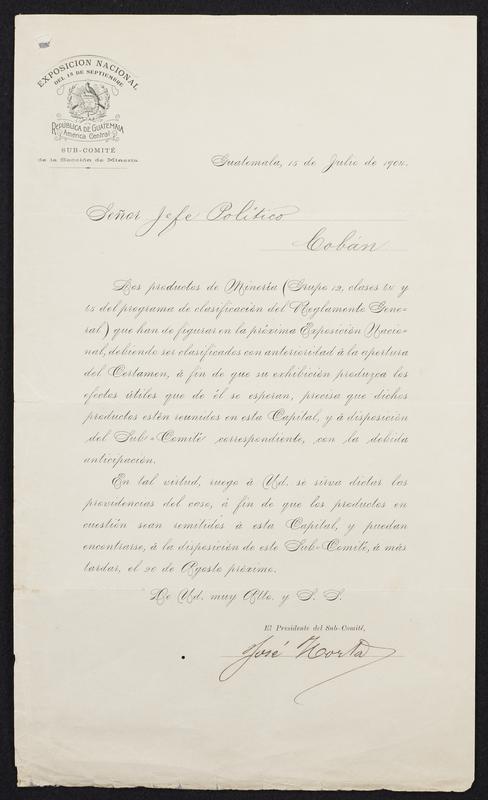 EXPOSICION NACIONAL
DEL 15 DE SEPTIEMBRE
REPÚBLICA DE GUATEMALA
América Central
SUB-COMITÉ
de la Sección de Minería.
Guatemala, 15 de Julio de 1904.
Señor Jefe Político
Cobán
Los productos de Minería (Grupo 12, clases 64 y
65 del programa de clasificación del Reglamento Gene-
ral) que han de figurar en la próxima Exposición Nacio-
nal, debiendo ser clasificados con anterioridad á la apertura
del Certamen, á fin de que su exhibición produzca los
efectos útiles que de él se esperan, precisa que dichos
productos estén reunidos en esta Capital, y á disposición
del Sub-Comité correspondiente, con la debida
anticipación.
En tal virtud, ruego á Ud. se sirva dictar las
providencias del caso, á fin de que los productos en
cuestión sean remitidos á esta Capital, y puedan
encontrarse, á la disposición de este Sub-Comité, á más
tardar, el 20 de Agosto próximo.
De Ud. muy Atto. y S. S.
El Presidente del Sub-Comité,
José Horta